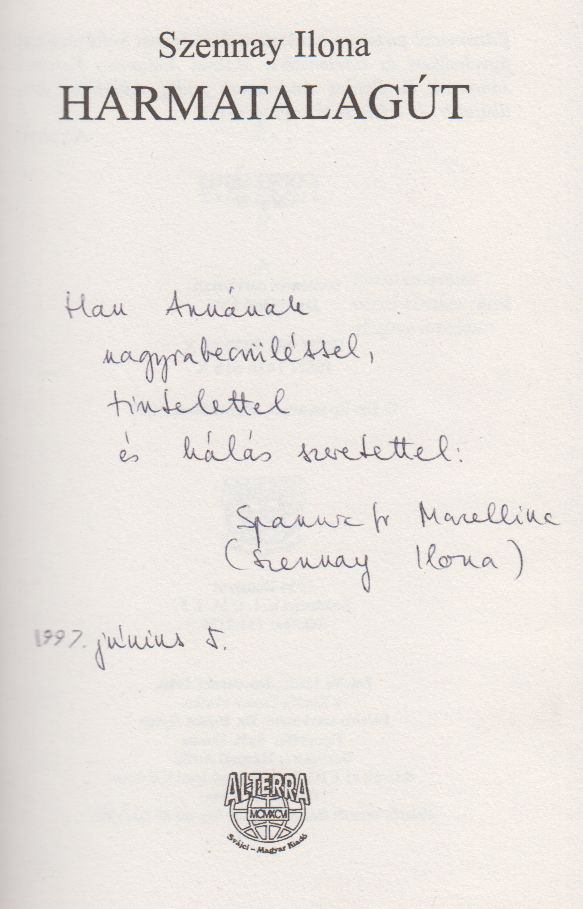 Szennay Ilona
HARMATALAGÚT
Han Annának
nagyrabecsüléssel,
tisztelettel
és hálás szeretettel:
Marcellina
(Szennay Ilona)
1997. június 5.
ALTERRA
MCMXCVI
Svájci – Magyar Kiadó